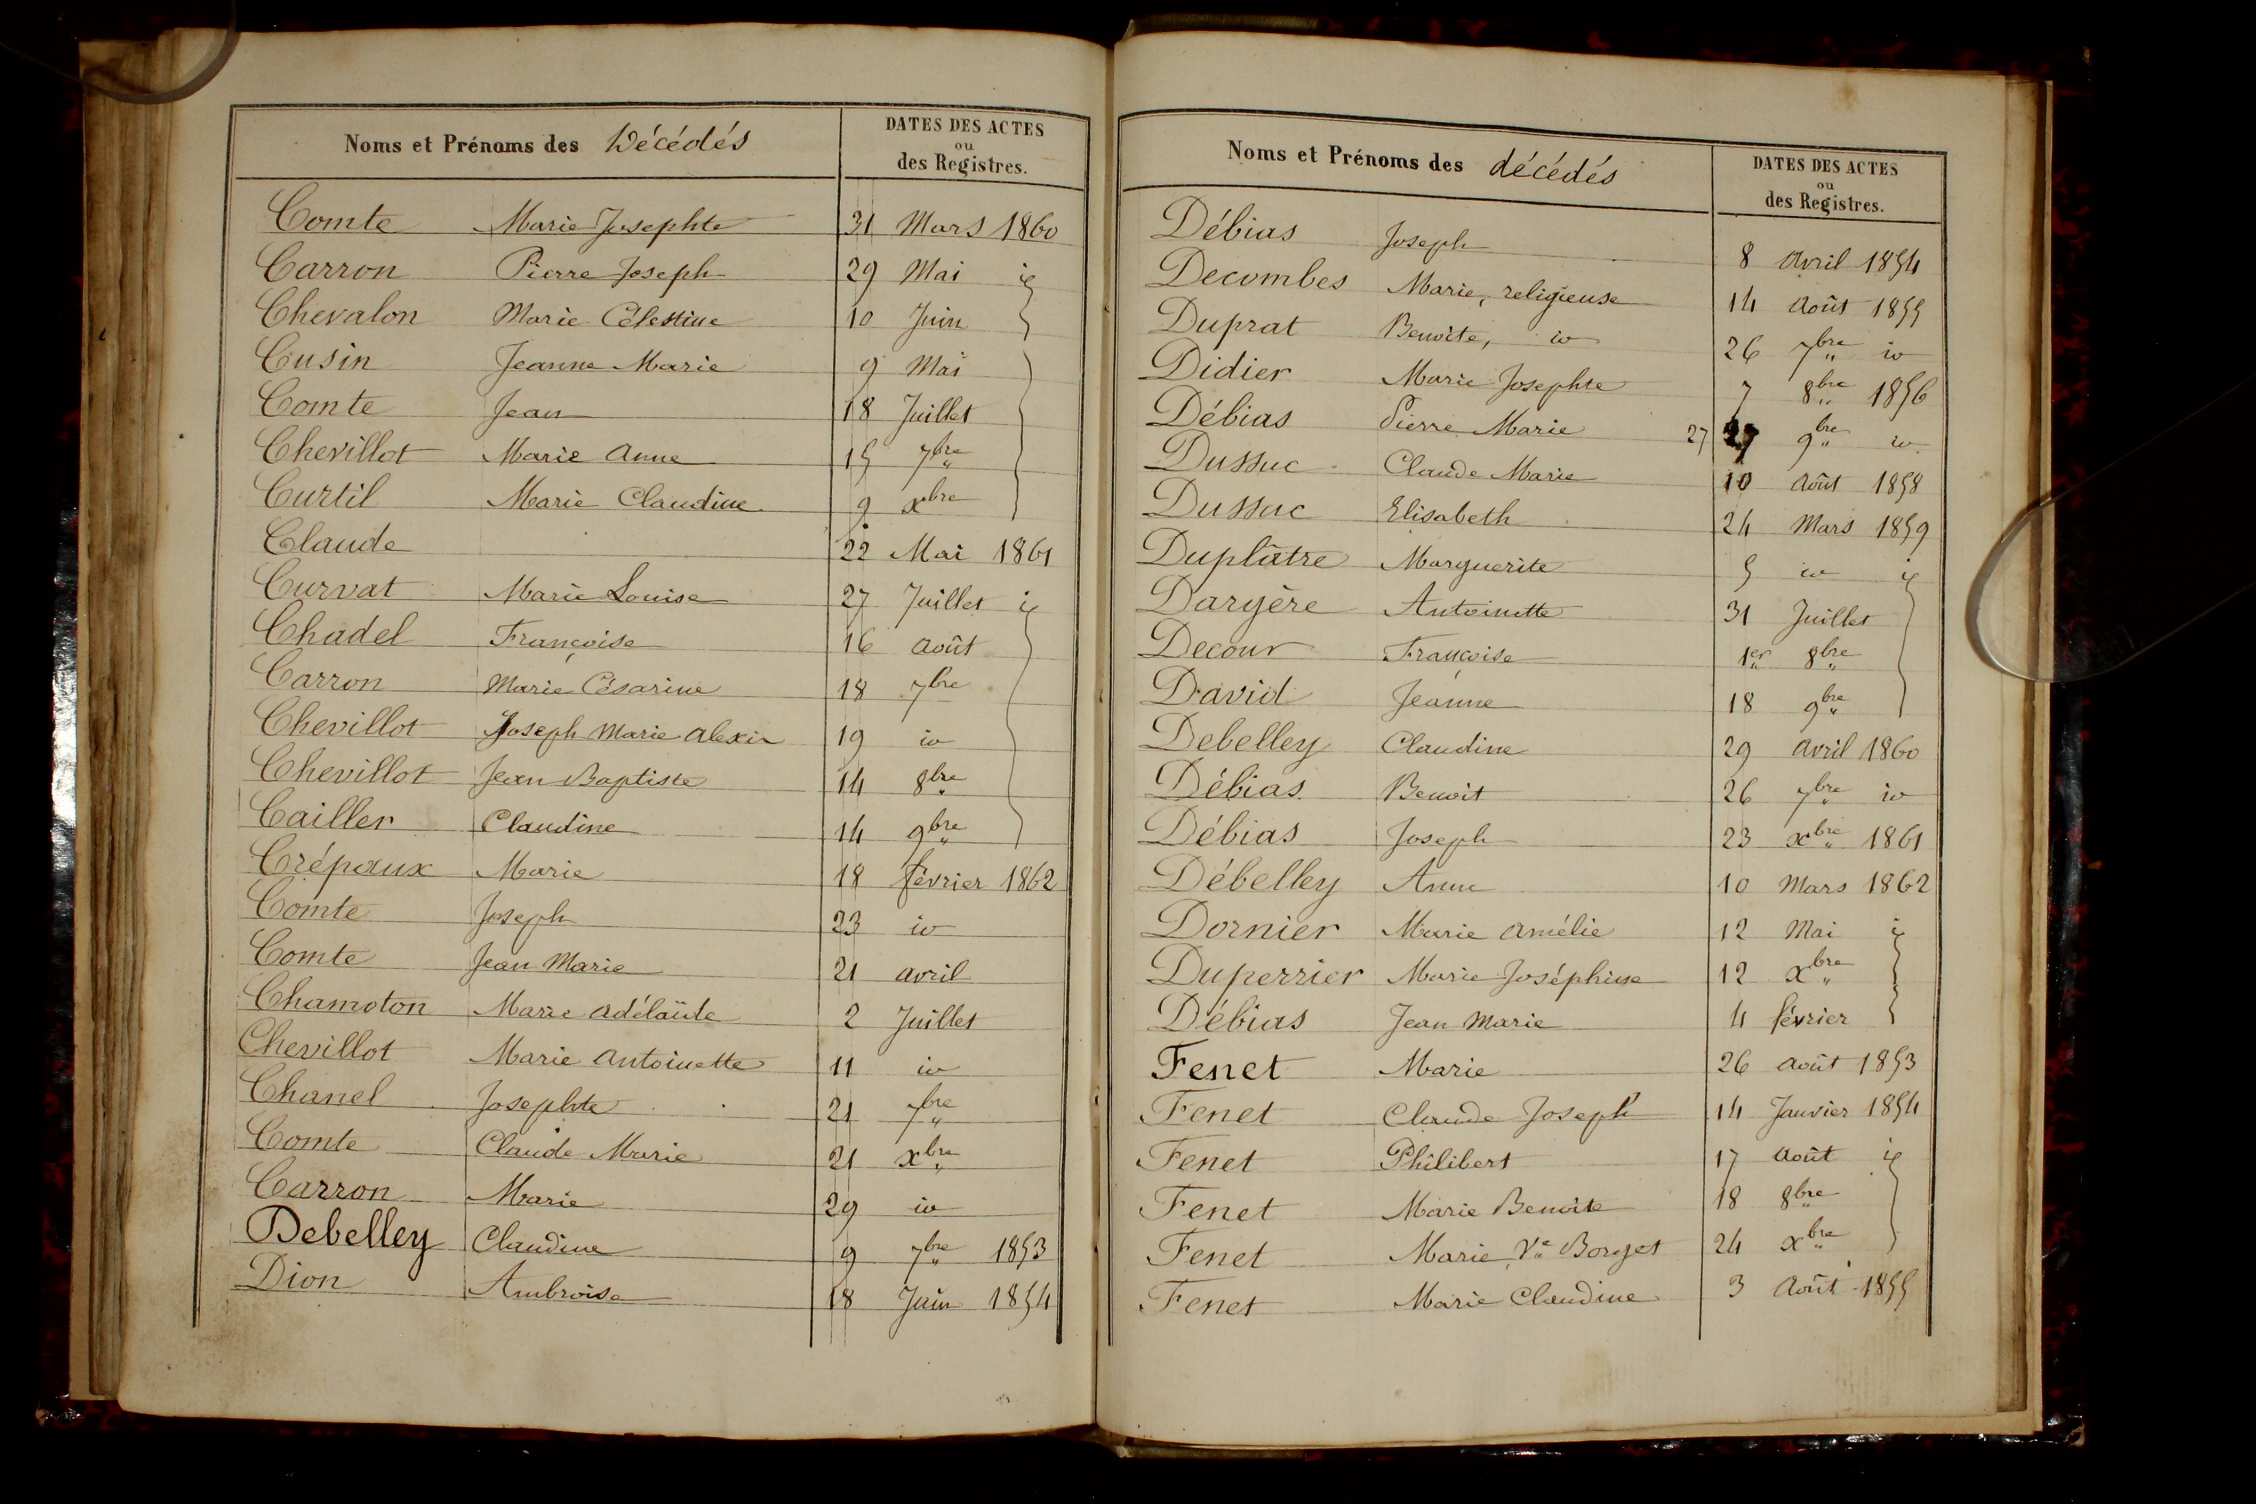 Noms et Prénoms des Décédés
DATES DES ACTES
ou
des Registres.
Comte Marie Josephte 31 Mars 1860
Carron Pierre Joseph 29 Mai id
Chevalon Marie Célestine 10 Juin
Cusin Jeanne Marie 9 Mai
Comte Jean 18 Juillet
Chevillot Marie Anne 15 7bre
Curtil Marie Claudine 9 xbre
Claude 22 Mai 1861
Curvat Marie Louise 27 Juillet id
Chadel Françoise 16 août
Carron Marie Césarine 18 7bre
Chevillot Joseph Marie Alexis 19 id
Chevillot Jean Baptiste 14 8bre
Cailler Claudine 14 9bre
Crépaux Marie 18 février 1862
Comte Joseph 23 id
Comte Jean Marie 21 avril
Chamoton Marie Adélaïde 2 Juillet
Chevillot Marie Antoinette 11 id
Chanel Josephte 21 7bre
Comte Claude Marie 21 xbre
Carron Marie 29 id
Debelley Claudine 9 7bre 1853
Dion Ambroise 18 Juin 1854
Noms et Prénoms des décédés
DATES DES ACTES
ou
des Registres.
Débias Joseph 8 avril 1854
Decombes Marie, religieuse 14 Août 1855
Duprat Benoite, id 26 7bre id
Didier Marie Josephte 7 8bre 1856
Débias Pierre Marie 27 27 9bre id
Dussuc Claude Marie 10 Août 1858
Dussuc Elisabeth 24 Mars 1859
Duplâtre Marguerite 5 id id
Dargère Antoinette 31 Juillet
Decour Françoise 1er 8bre
David Jeanne 18 9bre
Debelley Claudine 29 avril 1860
Débias Benoit 26 7bre id
Débias Joseph 23 xbre 1861
Débelley Anne 10 Mars 1862
Dornier Marie Amélie 12 Mai id
Duperrier Marie Joséphine 12 xbre
Débias Jean Marie 4 février
Fenet Marie 26 Août 1853
Fenet Claude Joseph 14 Janvier 1854
Fenet Philibert 17 Août id
Fenet Marie Benoite 18 8bre
Fenet Marie, Ve Borget 24 xbre
Fenet Marie Claudine 3 Août 1855